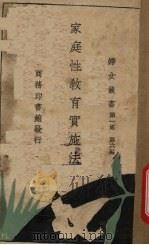 婦女叢書第一集第六種
家庭性教育實施法
商務印書館發行